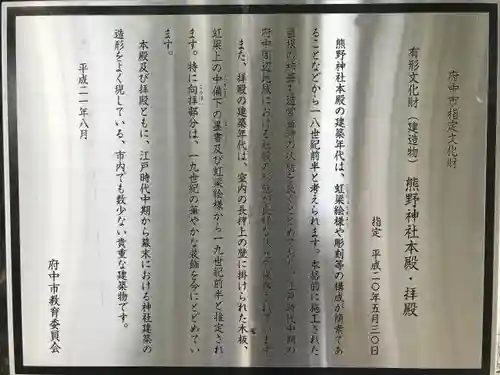 府中市指定文化財
有形文化財(建造物) 熊野神社本殿・拝殿
指定 平成二〇年五月三〇日
熊野神社本殿の建築年代は、虹梁絵様や彫刻等の構成が簡素であ
ることなどから一八世紀前半と考えられます。本格的に施工された
府中周辺地域における社殿の
また、拝殿の建築年代は、室内の長押上の壁に掛けられた木板、
虹梁上の中備下の墨書及び虹梁絵様から一九世紀前半と推定され
ます。特に向拝部分は、一九世紀の華やかな装飾を今にとどめてい
ます。
本殿及び拝殿ともに、江戸時代中期から幕末における神社建築の
造形をよく現している、市内でも数少ない貴重な建築物です。
平成二一年八月
府中市教育委員会